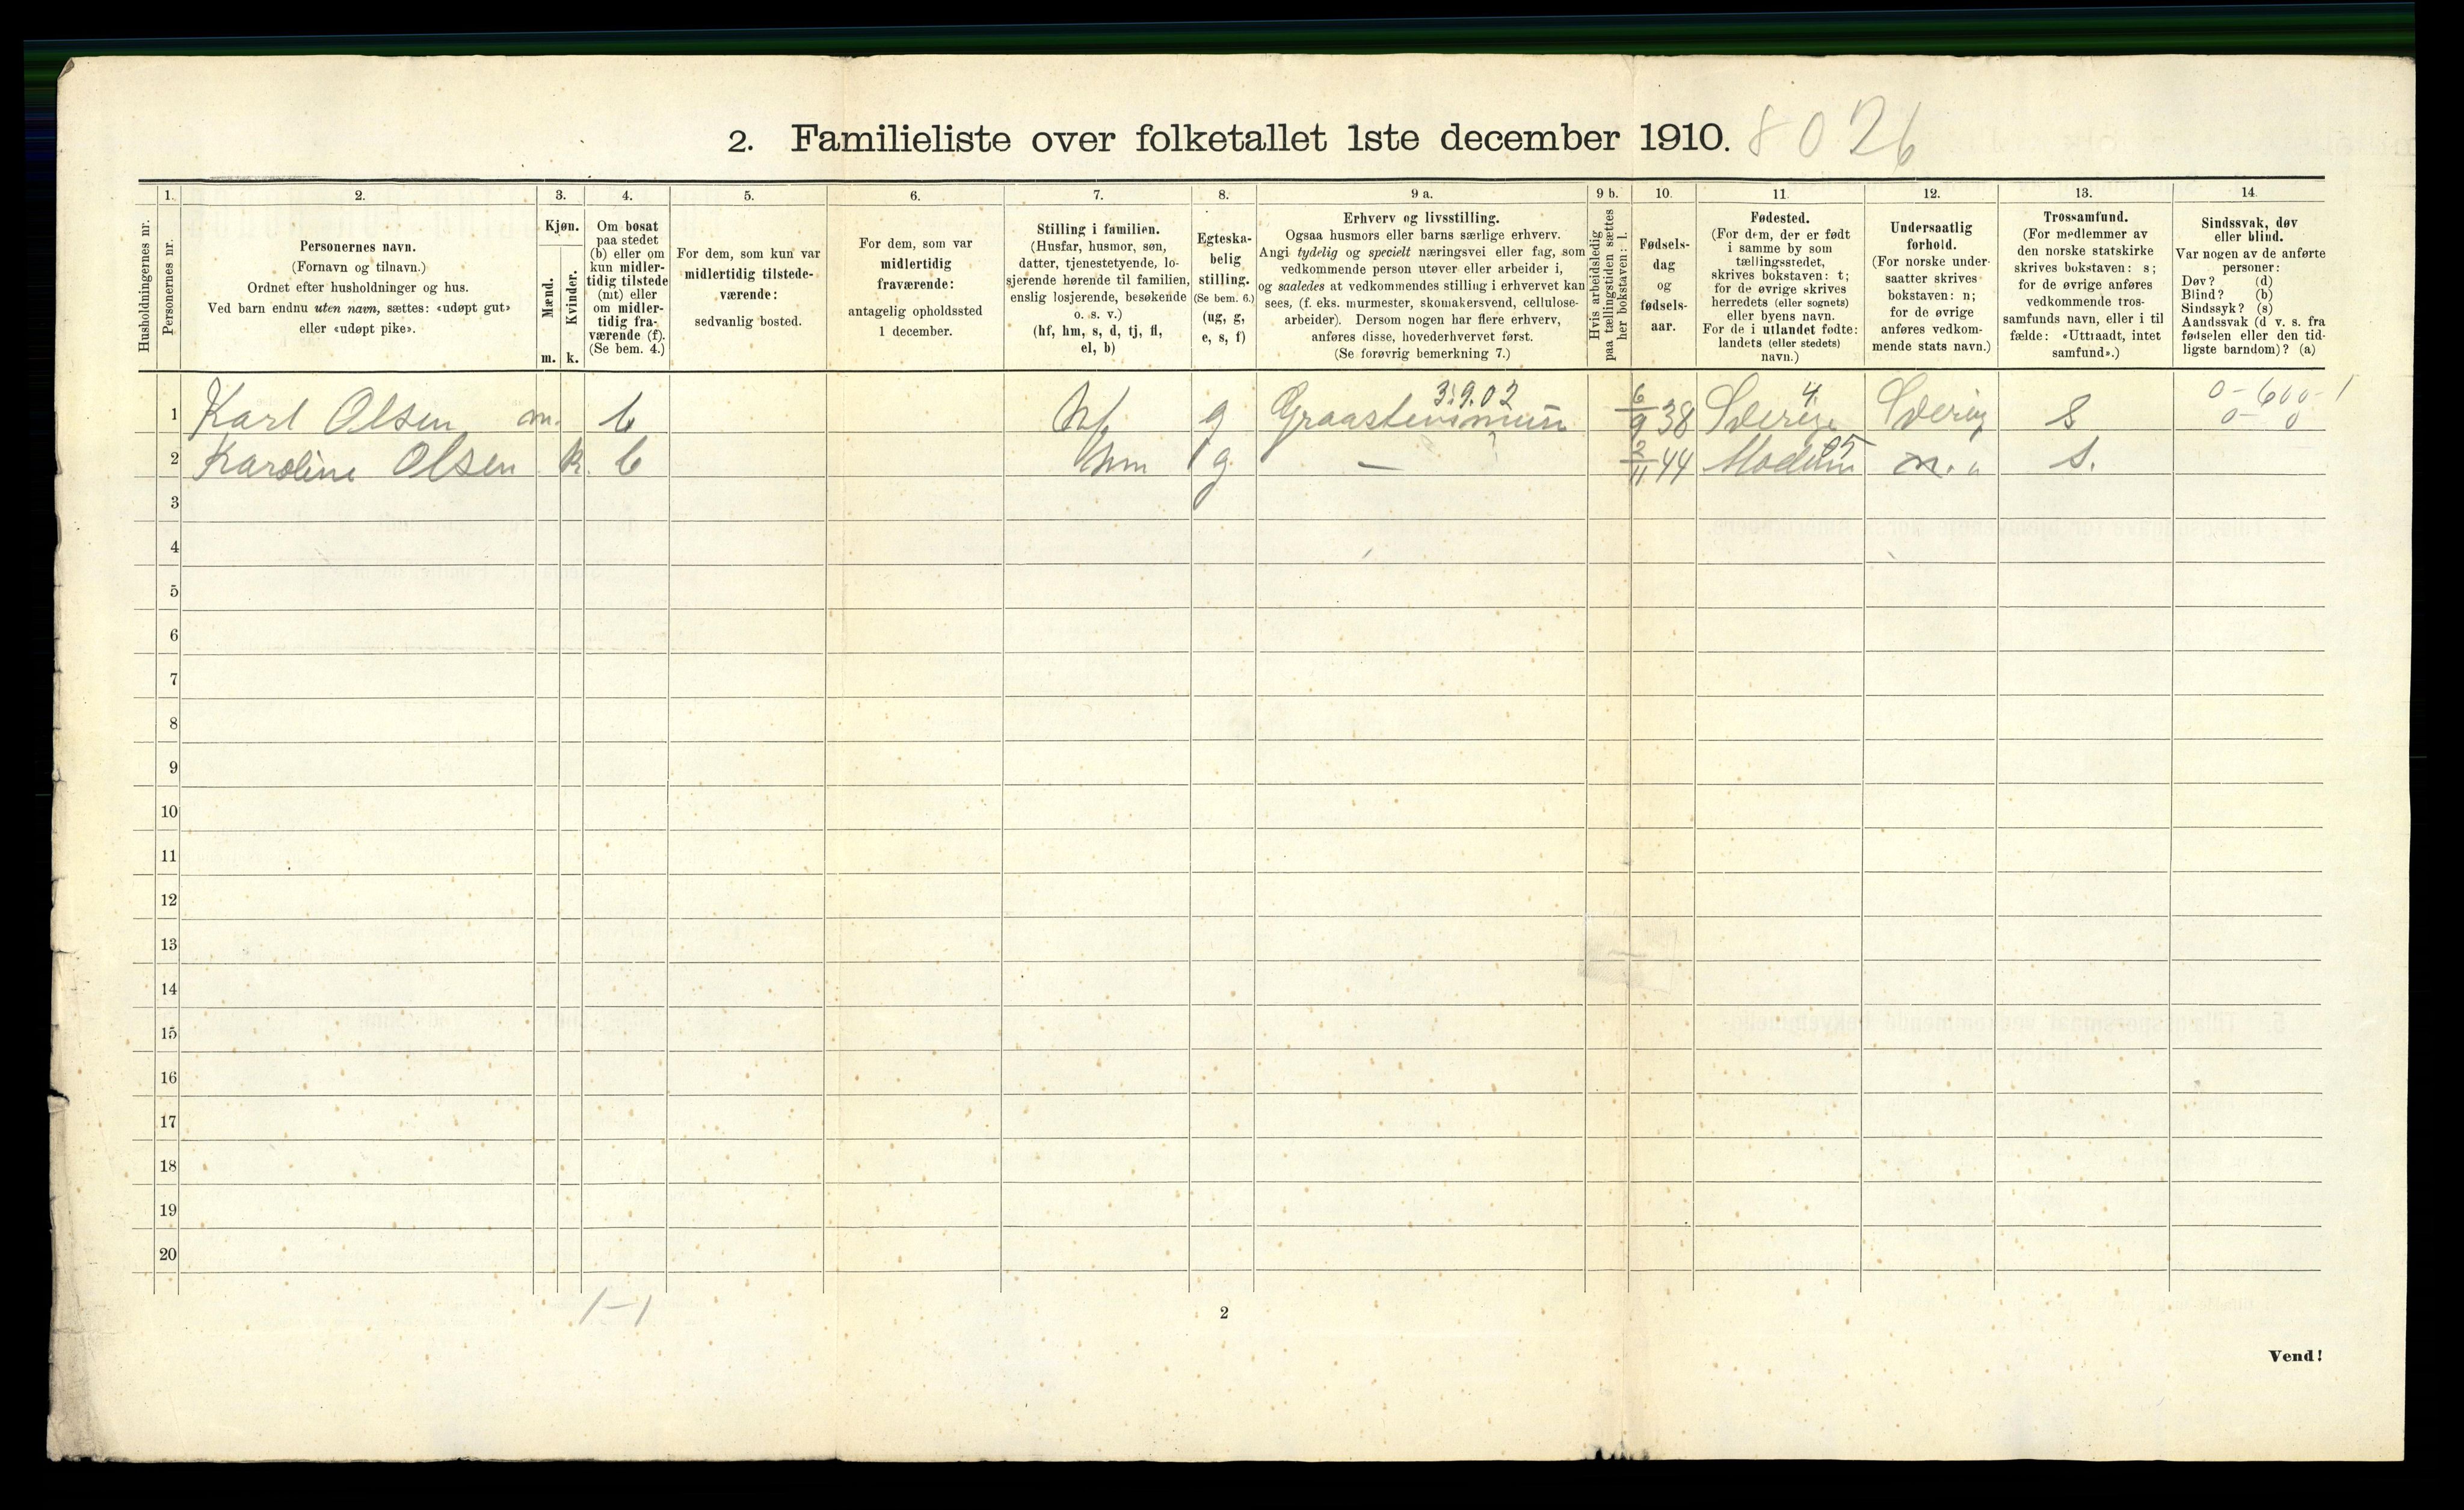 2. Familieliste over folketallet 1ste december 1910. 8026
Husholdningernes nr.
1.
Personernes nr.
2.
Personernes navn.
(Fornavn og tilnavn.)
Ordnet efter husholdninger og hus.
Ved barn endnu uten navn, sættes: «udøpt gut»
eller «udøpt pike».
3.
Kjøn.
Mænd.
m.
Kvinder.
k.
4.
Om bosat
paa stedet
(b) eller om
kun midler-
tidig tilstede
(mt) eller
om midler-
tidig fra-
værende (f).
(Se bem. 4.)
5.
For dem, som kun var
midlertidig tilstede-
værende:
sedvanlig bosted.
6.
For dem, som var
midlertidig
fraværende:
antagelig opholdssted
1 december.
7.
Stilling i familien.
(Husfar, husmor, søn,
datter, tjenestetyende, lo-
sjerende hørende til familien,
enslig losjerende, besøkende
o. s. v.)
(hf, hm, s, d, tj, fl,
el, b)
8.
Egteska-
belig
stilling.
(Se bem. 6.)
(ug, g,
e, s, f)
9 a.
Erhverv og livsstilling.
Ogsaa husmors eller barns særlige erhverv.
Angi tydelig og specielt næringsvei eller fag, som
vedkommende person utøver eller arbeider i,
og saaledes at vedkommendes stilling i erhvervet kan
sees, (f. eks. murmester, skomakersvend, cellulose-
arbeider). Dersom nogen har flere erhverv,
anføres disse, hovederhvervet først.
(Se forøvrig bemerkning 7.)
9 b.
Hvis arbeidsledig
paa tællingstiden sættes
her bokstaven: l.
10.
Fødsels-
dag
og
fødsels-
aar.
11.
Fødested.
(For dem, der er født
i samme by som
tællingsstedet,
skrives bokstaven: t;
for de øvrige skrives
herredets (eller sognets)
eller byens navn.
For de i utlandet fødte:
landets (eller stedets)
navn.)
12.
Undersaatlig
forhold.
(For norske under-
saatter skrives
bokstaven: n;
for de øvrige
anføres vedkom-
mende stats navn.)
13.
Trossamfund.
(For medlemmer av
den norske statskirke
skrives bokstaven: s;
for de øvrige anføres
vedkommende tros-
samfunds navn, eller i til
fælde: «Uttraadt, intet
samfund».)
14.
Sindssvak, døv
eller blind.
Var nogen av de anførte
personer:
Døv? (d)
Blind? (b)
Sindssyk? (s)
Aandssvak (d v. s. fra
fødselen eller den tid-
ligste barndom)? (a)
3.9.02 4 0-600-1
1 Karl Olsen m. b hf g 6/9 38 Sverige Sverig s 0- 0
2 Karoline Olsen k. b hm g. — 2/11 44 Modum n. s.
3
4
5
6
7
8
9
10
11
12
13
14
15
16
17
18
19
20
1-1
2
Vend!